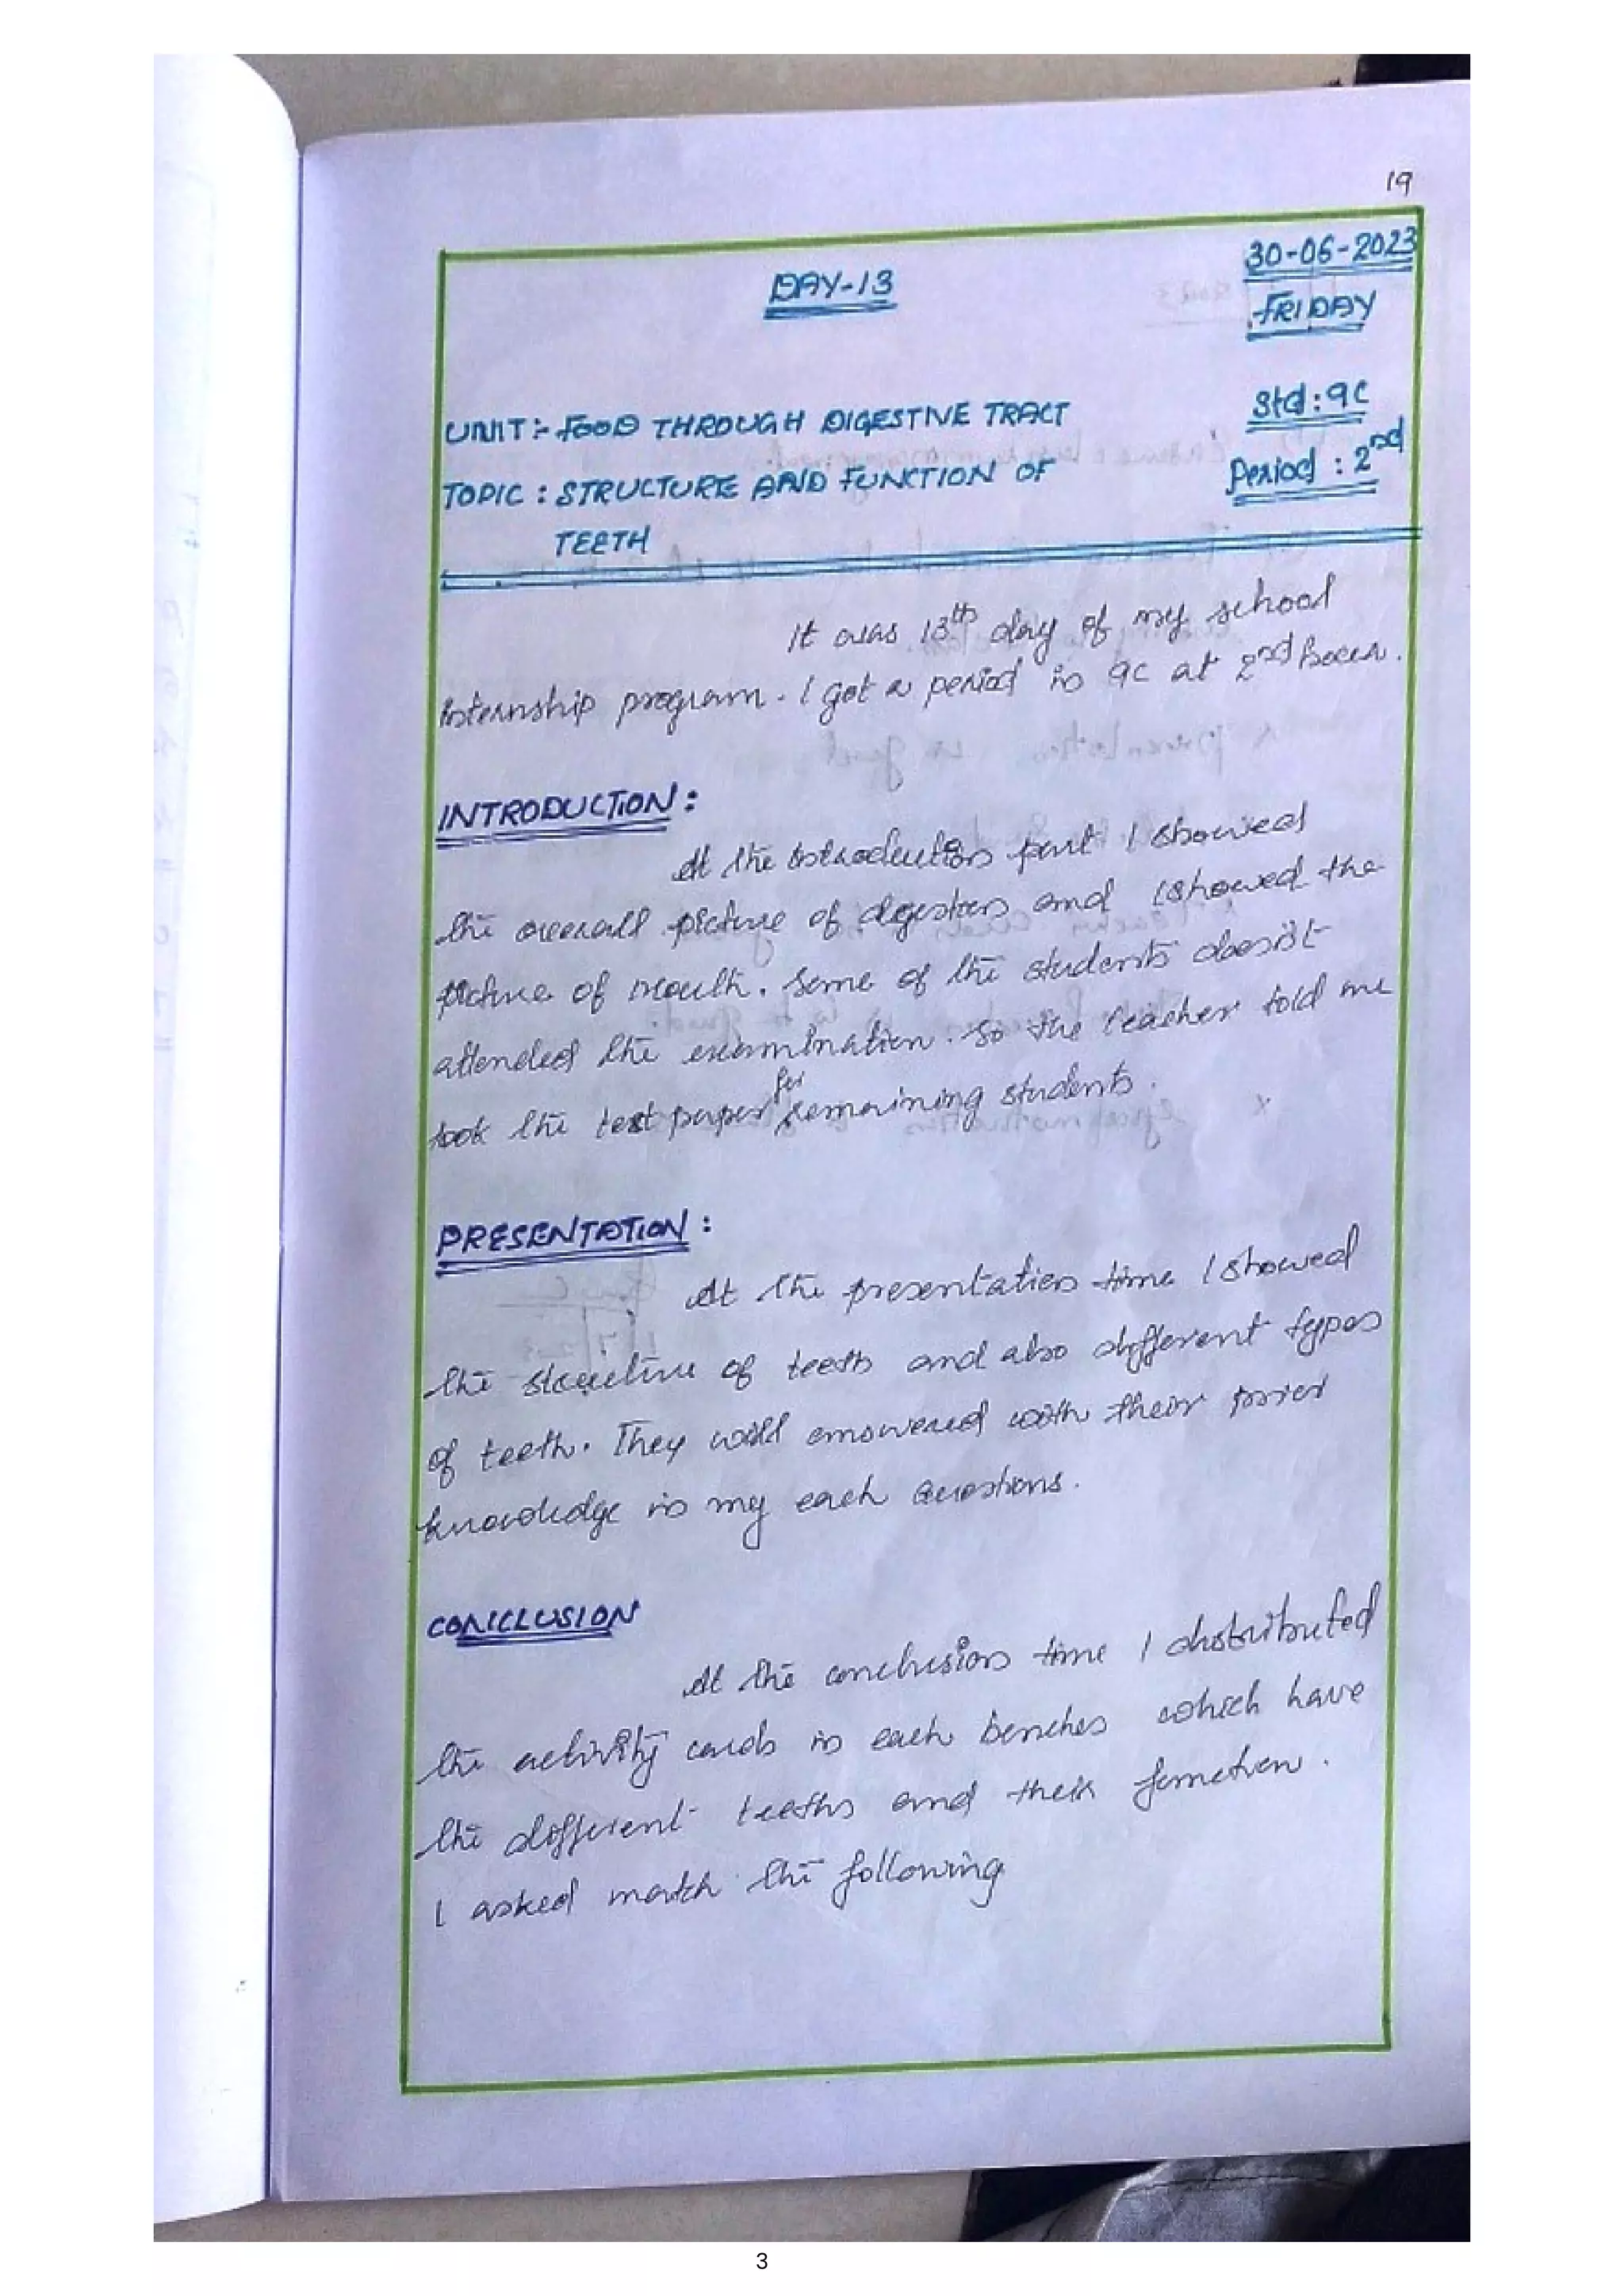 19
DAY-13
30-06-2023
FRIDAY
UNIT:- FOOD THROUGH DIGESTIVE TRACT
Std: 9C
TOPIC : STRUCTURE AND FUNCTION OF
Period : 2nd
TEETH
It was 13th day of my school
internship program. I got a period in 9C at 2nd hour.
INTRODUCTION :
At the introduction part I showed
the overall picture of digestion and I showed the
picture of mouth. Some of the students doesn't
attended the examination. So the teacher told me
took the test paper for remaining students.
PRESENTATION :
At the presentation time I showed
the structure of teeth and also different types
of teeth. They will answered with their prior
knowledge in my each questions.
CONCLUSION
At the conclusion time I distributed
the activity cards in each benches which have
the different teeths and their function.
I asked match the following
3